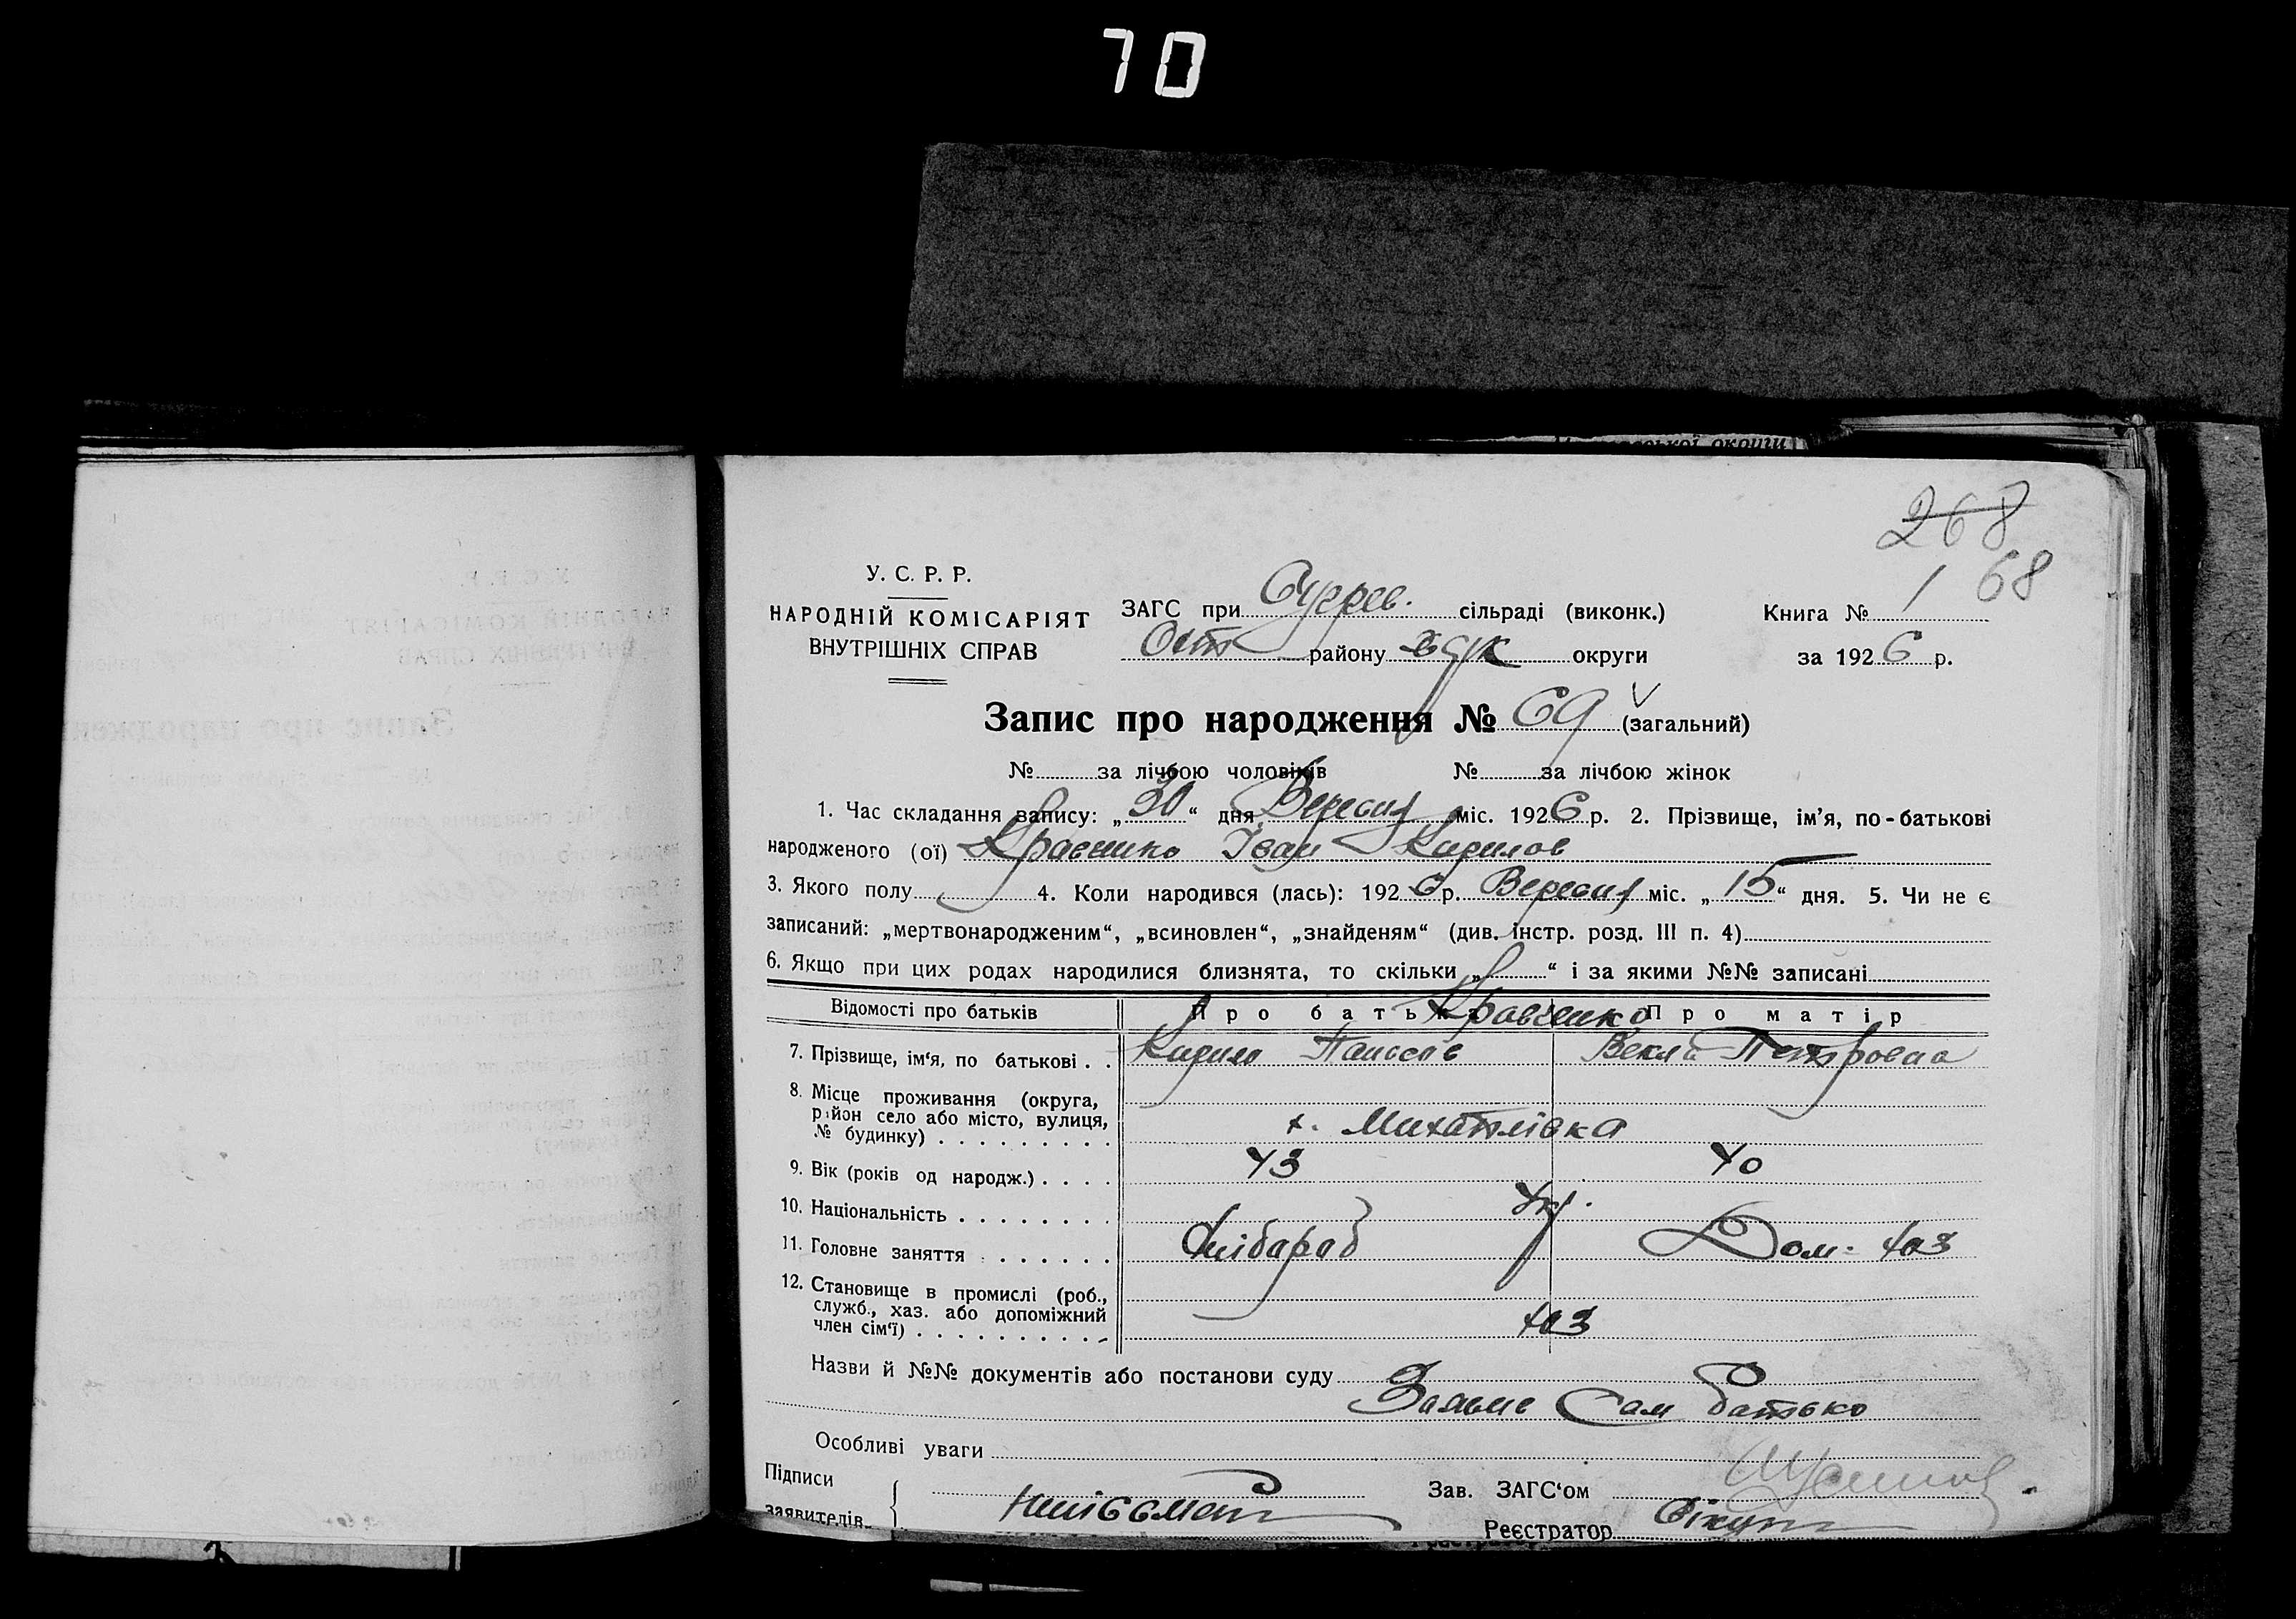 70
268
68
У. С. Р. Р.
НАРОДНІЙ КОМІСАРІЯТ
ВНУТРІШНІХ СПРАВ
ЗАГС при сільраді (виконк.)
району округи
Книга № 1
за 1926 р.
Запис про народження № 69 (загальний)
№ за лічбою чоловіків № за лічбою жінок
1. Час складання запису: „30“ дня Вересня міс. 1926 р. 2. Прізвище, ім’я, по-батькові
народженого (ої) Кравченко Іван Кирилов
3. Якого полу 4. Коли народився (лась): 1926 р. Вересня міс. „15“ дня. 5. Чи не є
записаний: „мертвонародженим“, „всиновлен“, „знайденям“ (див. інстр. розд. III п. 4)
6. Якщо при цих родах народилися близнята, то скільки „ “ і за якими №№ записані
Відомості про батьків Про батька Кравченко Про матір
7. Прізвище, ім‘я, по батькові . . Кирило Векла Петровна
8. Місце проживання (округа,
район село або місто, вулиця,
№ будинку) х. Михайлівка
9. Вік (років од народж.) 43 40
10. Національність Укр.
11. Головне заняття Хлібароб Дом. хаз
12. Становище в промислі (роб.,
служб., хаз. або допоміжний
член сім‘ї) хаз
Назви й №№ документів або постанови суду
Заявив Сам батько
Особливі уваги
Підписи
заявителів
Зав. ЗАГС‘ом
Реєстратор